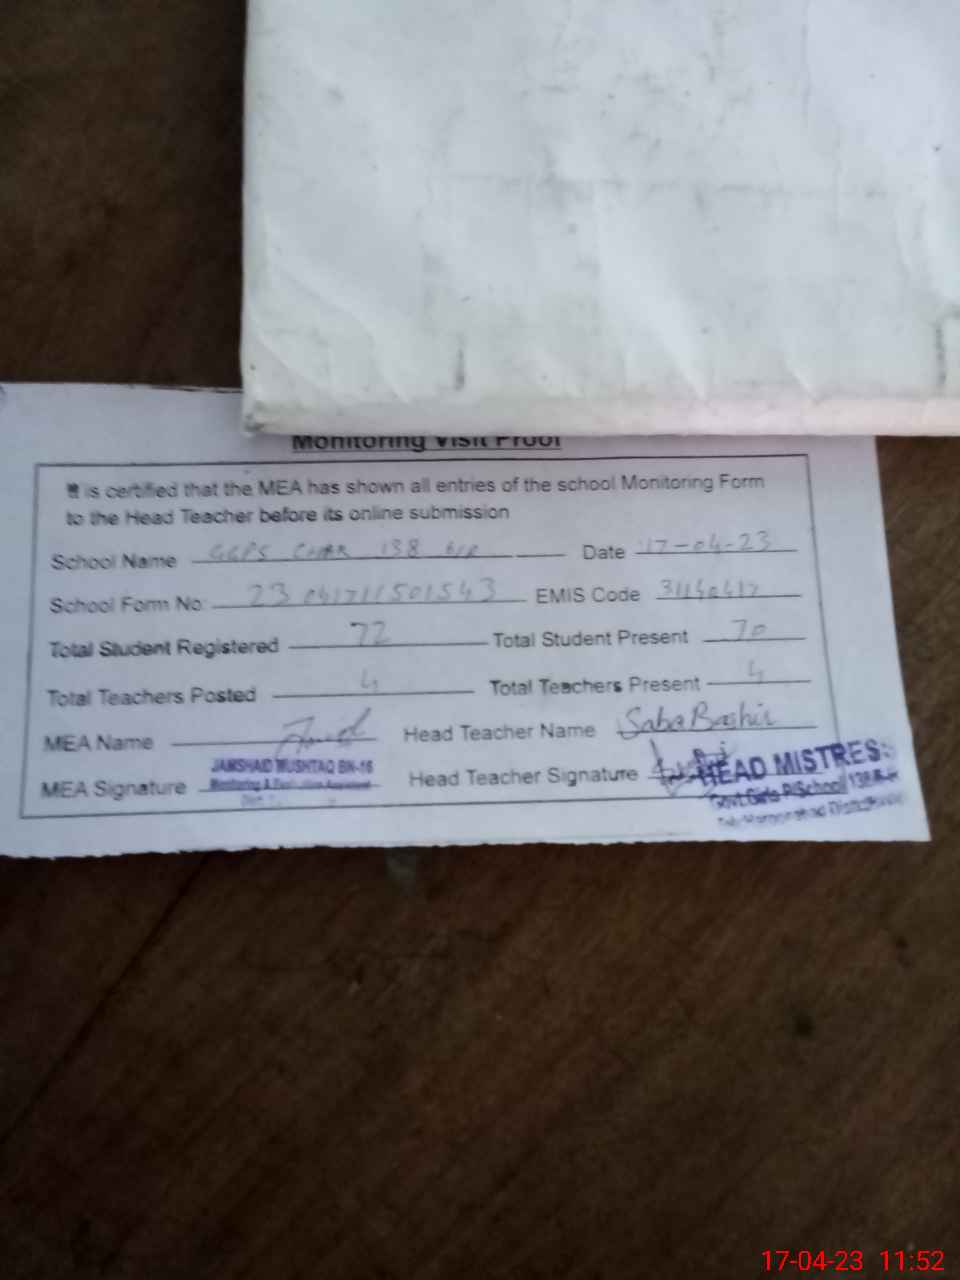 Monitoring Visit Proof
It is certified that the MEA has shown all entries of the school Monitoring Form
to the Head Teacher before its online submission
School Name GGPS CHAK 138 6/R Date 17-04-23
School Form No: 23 041711501543 EMIS Code 31140417
Total Student Registered 72 Total Student Present 70
Total Teachers Posted 4 Total Teachers Present 4
MEA Name Head Teacher Name Saba Bashir
MEA Signature JAMSHAID MUSHTAQ Head Teacher Signature HEAD MISTRESS
Monitoring & Govt. Girls P/School 138
17-04-23 11:52